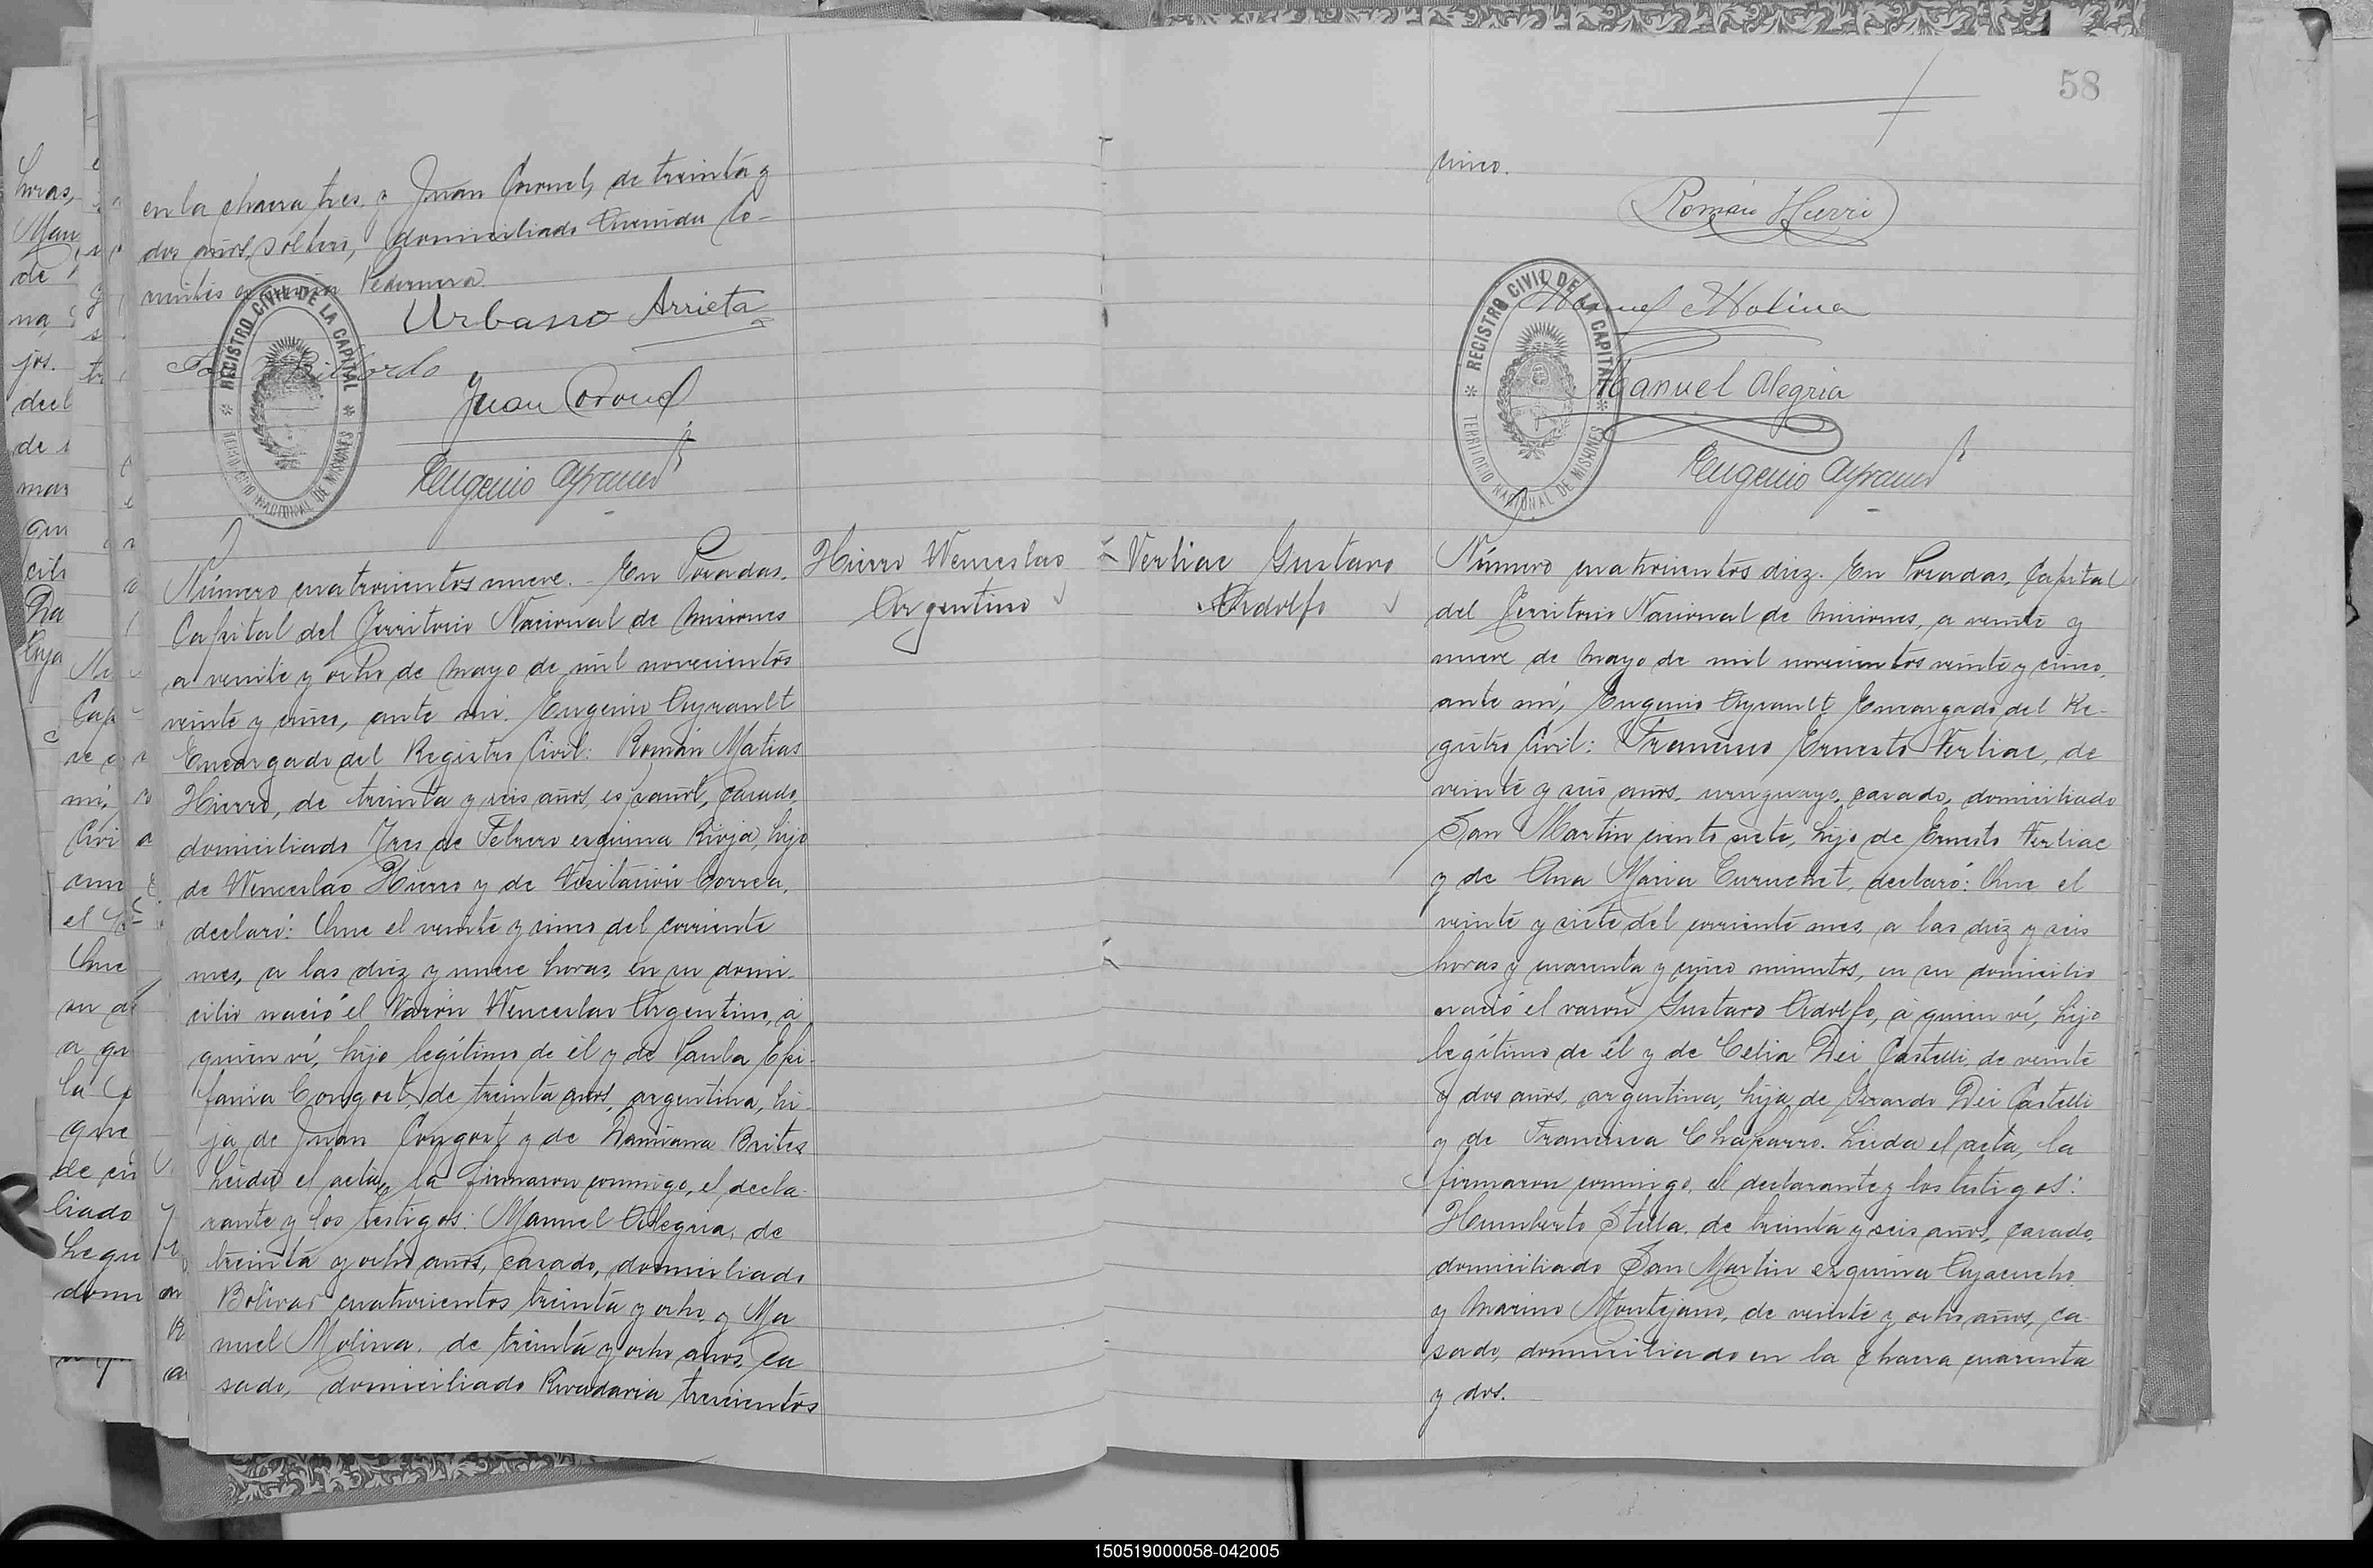 en la chacra tres. y Juan Coronel, de treinta y
dos años, soltero, domiciliado Avenida Co-
rrientes esquina Pedernera.
Urbano Arrieta
Juan Coronel
Eugenio Ayrault
REGISTRO CIVIL DE LA CAPITAL
TERRITORIO NACIONAL DE MISIONES
Hierro Wenceslao
Argentino
Número cuatrocientos nueve. - En Posadas,
Capital del Territorio Nacional de Misiones
a veinte y ocho de Mayo de mil novecientos
veinte y cinco, ante mi. Eugenio Ayrault
Encargado del Registro Civil: Román Matias
Hierro, de treinta y seis años, español, casado,
domiciliado Tres de Febrero esquina Rioja, hijo
de Wenceslao Hierro y de Visitación Correa,
declaró: Que el veinte y cinco del corriente
mes, a las diez y nueve horas, en su domi-
cilio nació el Varón Wenceslao Argentino, á
quien ví, hijo legítimo de él y de Paula Epi-
fania Congost, de treinta años, argentina, hi-
ja de Juan Congost y de Damiana Brites
Leída el acta, la firmaron conmigo, el decla-
rante y los testigos: Manuel Alegria, de
treinta y ocho años, casado, domiciliado
Bolivar cuatrocientos treinta y ocho y Ma
nuel Molina, de treinta y ocho años, ca
sado, domiciliado Rivadavia trescientos
58
cinco.
Román Hierro
Manuel Molina
Manuel Alegria
Eugenio Ayrault
REGISTRO CIVIL DE LA CAPITAL
TERRITORIO NACIONAL DE MISIONES
Verliac Gustavo
Adolfo
Número cuatrocientos diez. En Posadas, Capital
del Territorio Nacional de Misiones, a veinte y
nueve de Mayo de mil novecientos veinte y cinco,
ante mí, Eugenio Ayrault Encargado del Re-
gistro Civil: Francisco Ernesto Verliac, de
veinte y seis años, uruguayo, casado, domiciliado
San Martin ciento siete, hijo de Ernesto Verliac
y de Ana Maria Curuchet, declaró: Que el
veinte y siete del corriente mes, a las diez y seis
horas y cuarenta y cinco minutos, en su domicilio
nació el varón Gustavo Adolfo, á quien ví, hijo
legítimo de él y de Celia Dei Castelli, de veinte
y dos años, argentina, hija de Gerardo Dei Castelli
y de Francisca Chaparro. Leída el acta, la
firmaron conmigo, el declarante y los testigos:
Humberto Stella, de treinta y seis años, casado,
domiciliado San Martin esquina Ayacucho
y Marino Montejano, de veinte y ocho años, ca-
sado, domiciliado en la chacra cuarenta
y dos.
150519000058-042005